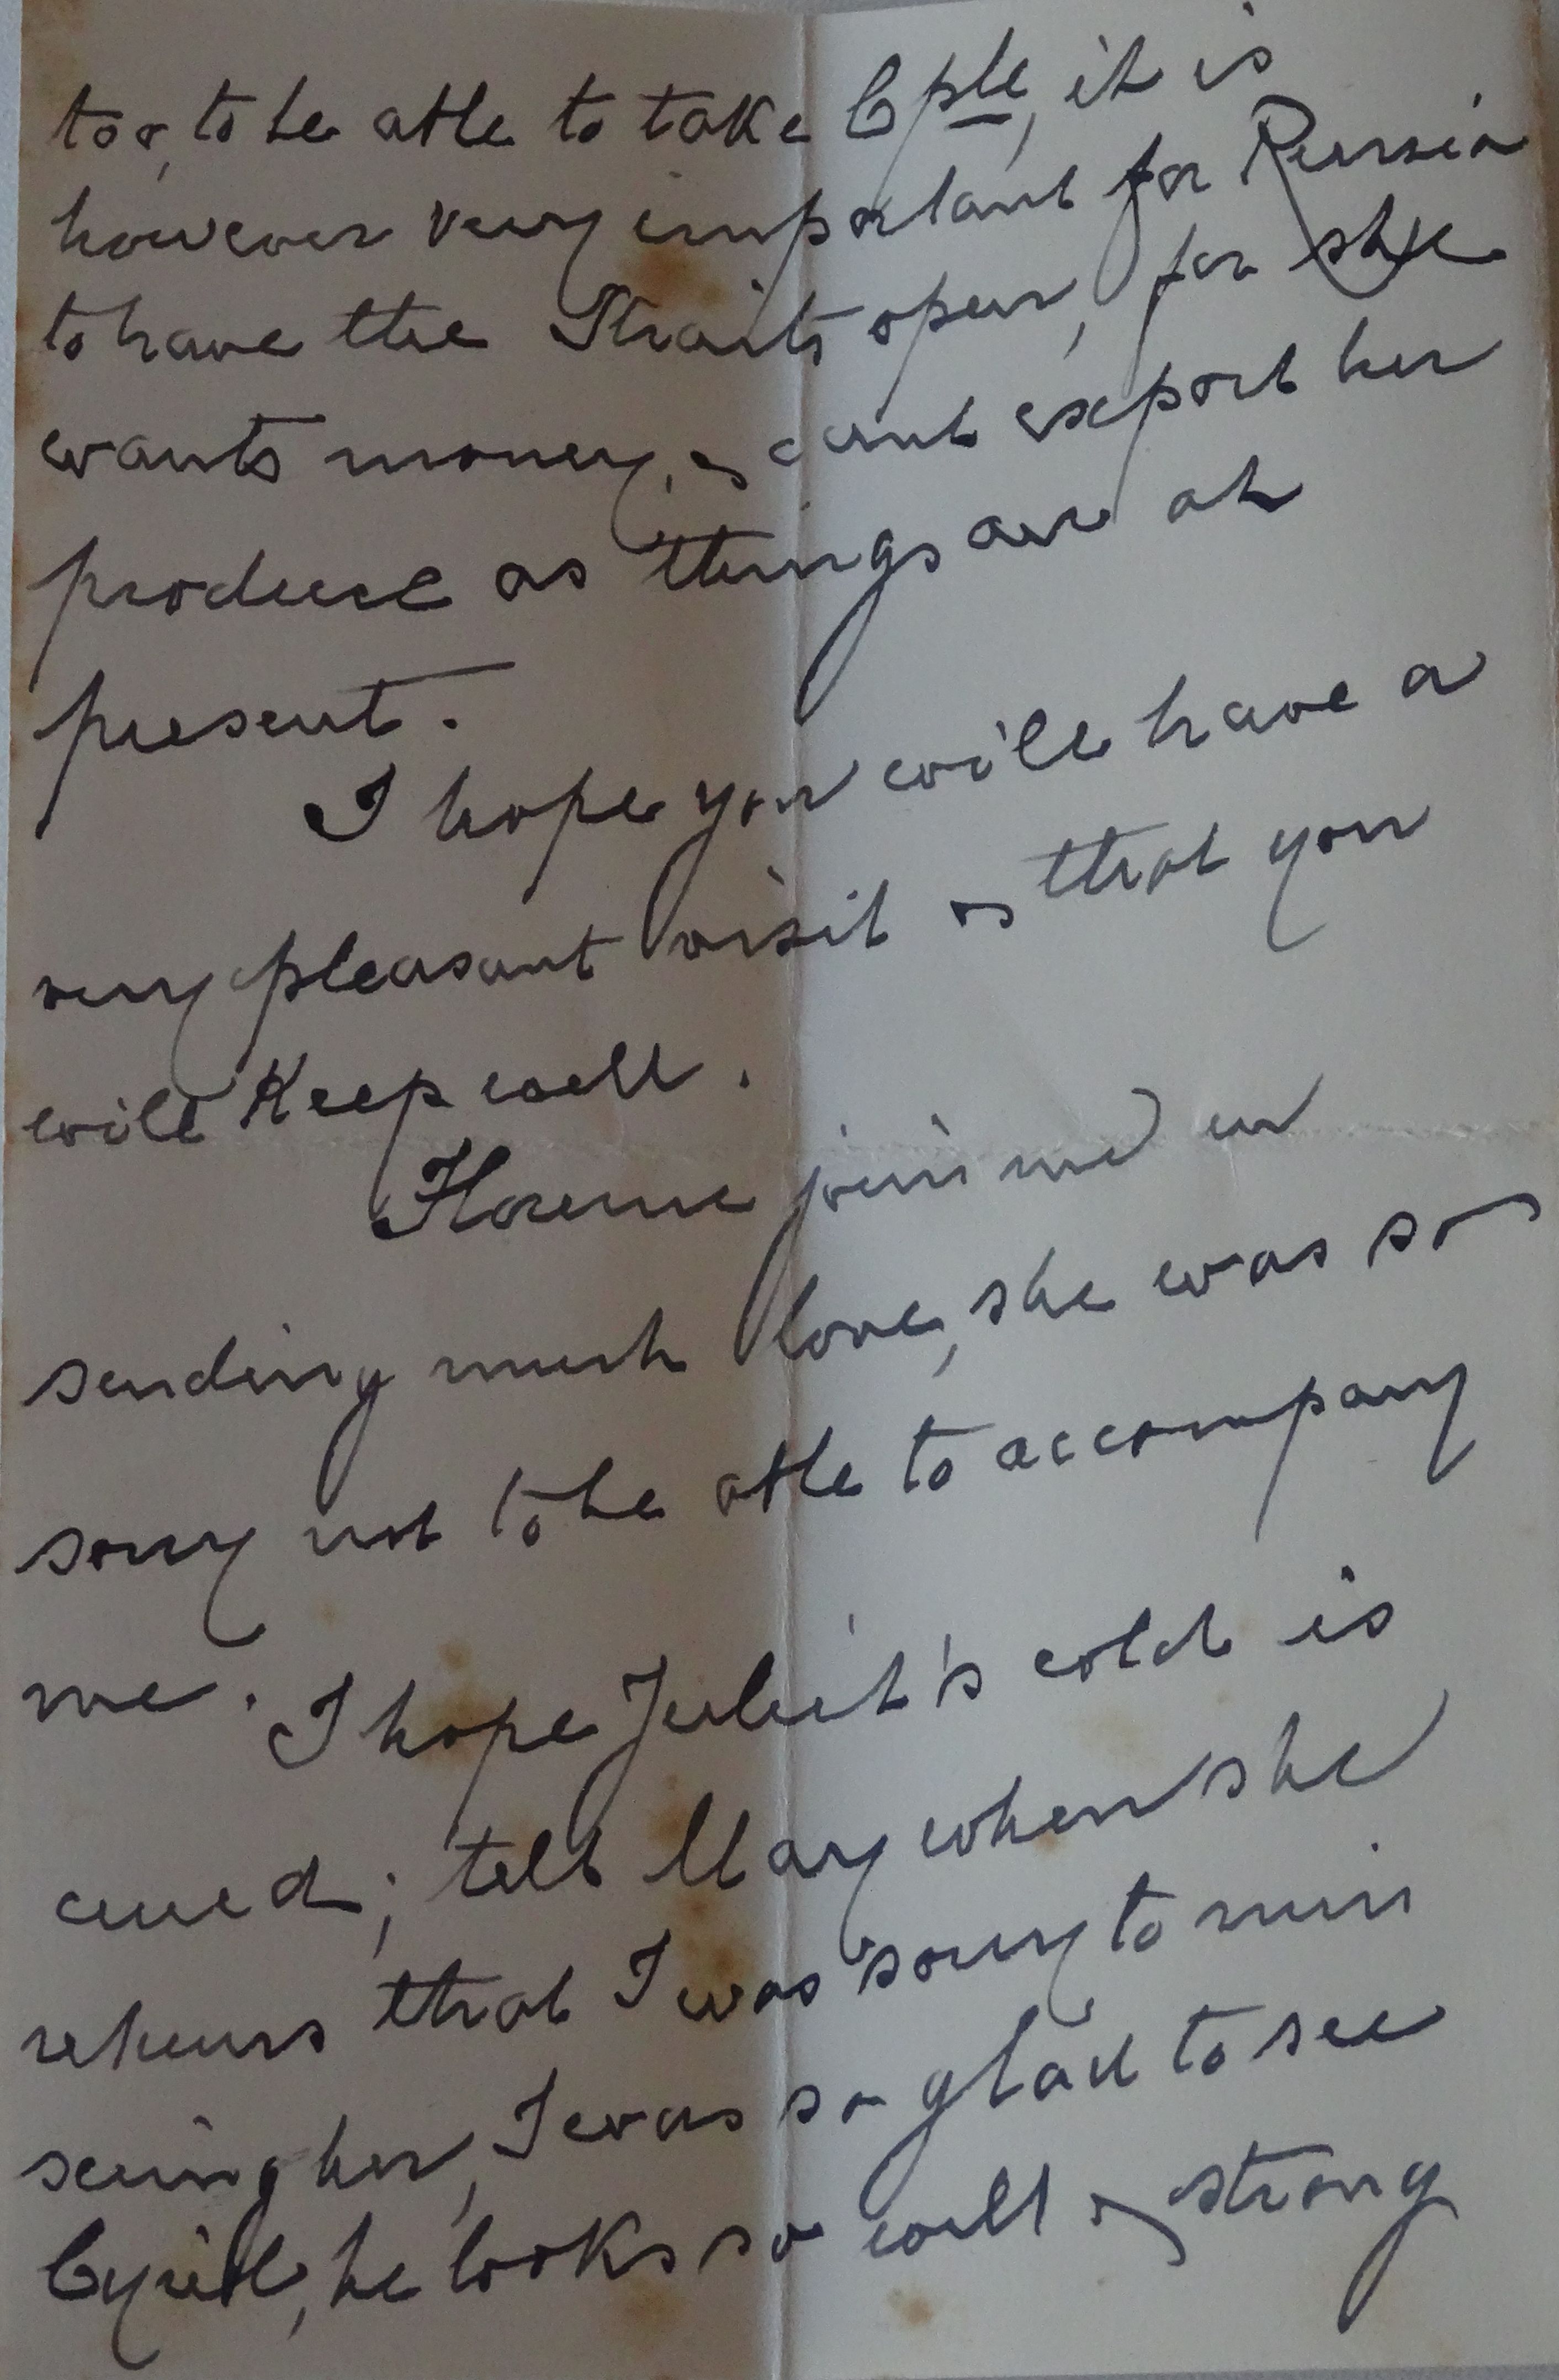 too, to be able to take Cple, it is
however very important for Russia
to have the Straits open, for she
wants money, & cant export her
produce as things are at
present.
I hope you will have a
very pleasant visit & that you
will keep well.
Florence joins me in
sending much love, she was so
sorry not to be able to accompany
me. I hope Juliet's cold is
cured; tell Mary when she
returns that I was sorry to miss
seeing her, I was so glad to see
Cyril, he looks so well & strong